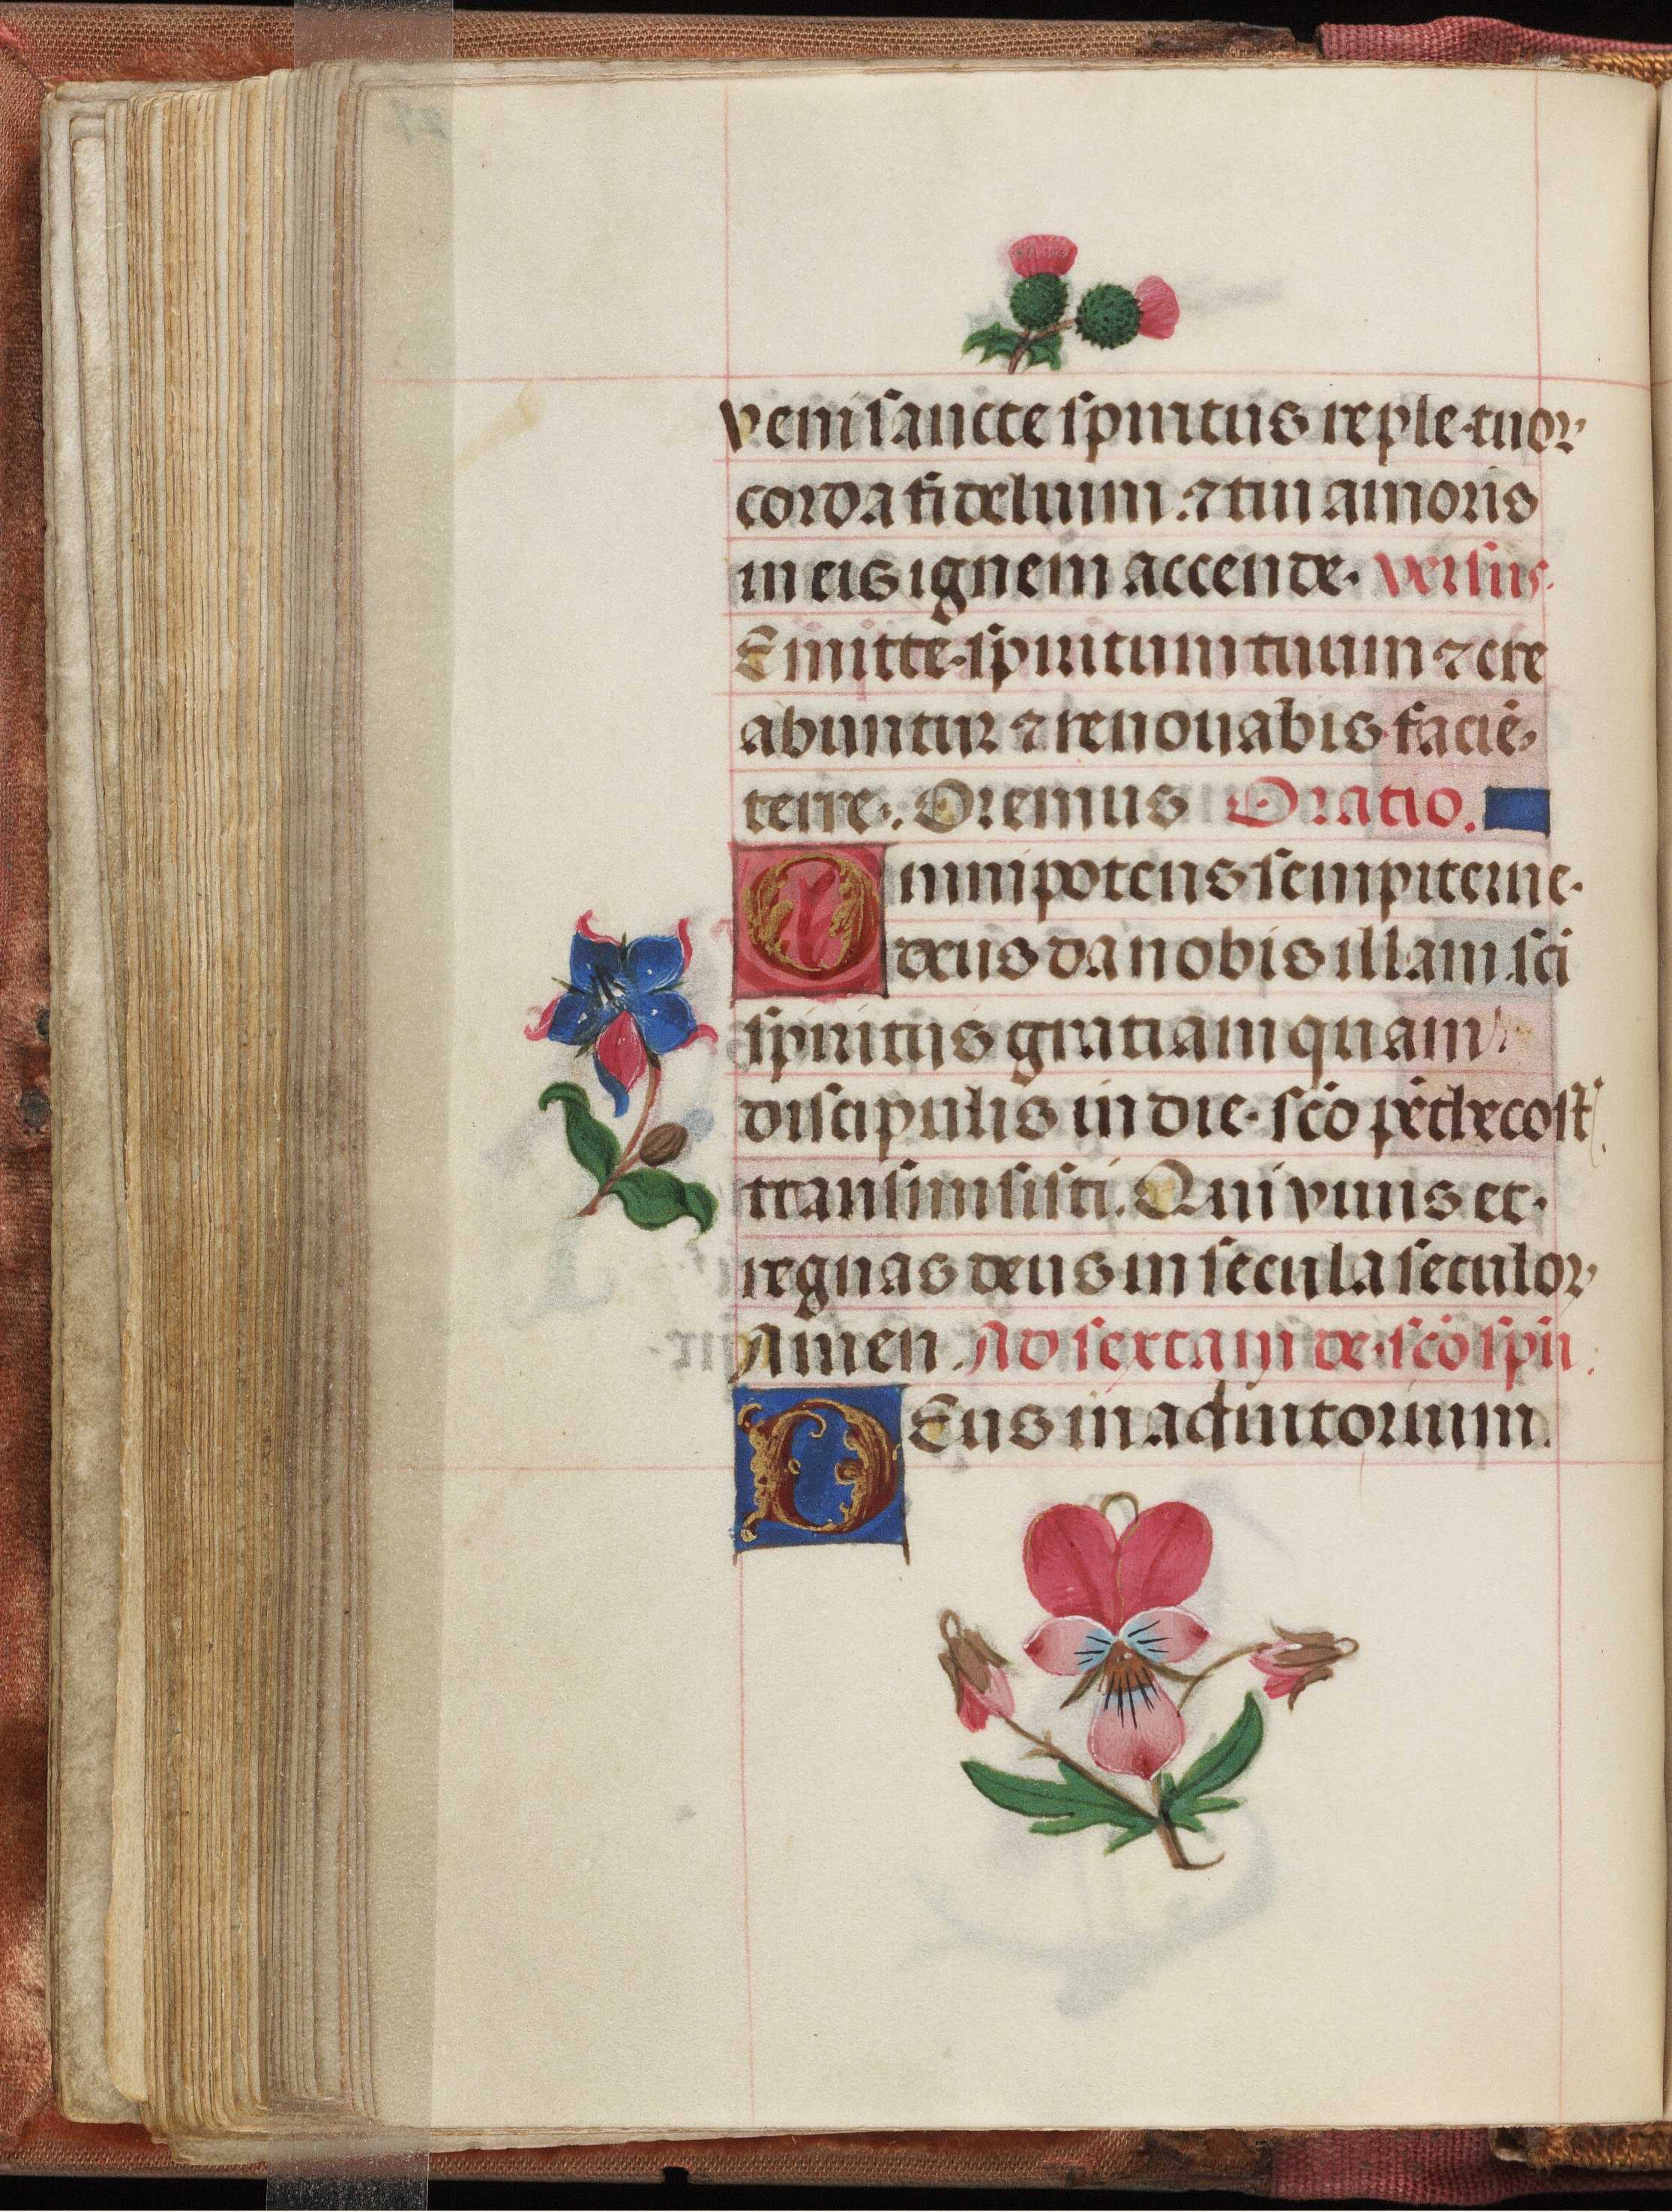 veni sancte spiritus reple tuoꝝ
corda fidelium ⁊ tui amoris
in eis ignem accende. versus.
Emitte spiritum tuum ⁊ cre
abuntur ⁊ renouabis faciē
terre. Oremus Oratio.
Omnipotens sempiterne
deus da nobis illam sc̄i
spiritus gratiam quam
discipulis in die sc̄o pēthecost
transmisisti. Qui viuis et
regnas deus in secula seculoꝝ
Amen. Ad sextam de sc̄o spū
DEus in adiutorium.